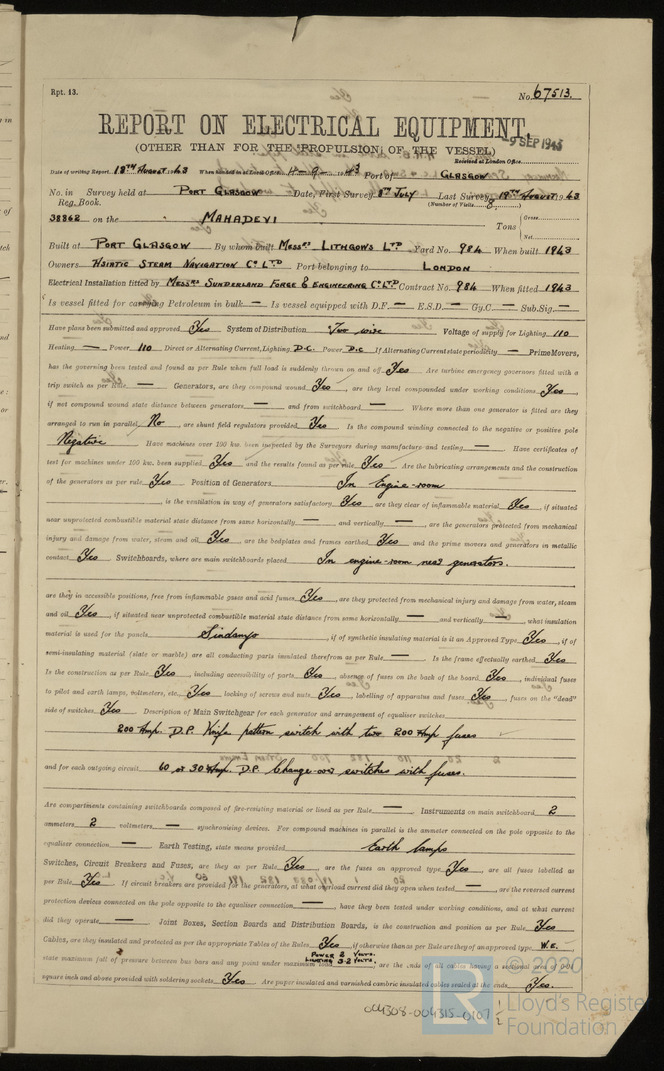 Rpt. 13.
No. 67513.
REPORT ON ELECTRICAL EQUIPMENT.
(OTHER THAN FOR THE PROPULSION OF THE VESSEL)
-9 SEP 1943
Received at London Office
Date of writing Report 18TH AUGUST 1943 When handed in at Local Office 4-9-1943 Port of GLASGOW
No. in Survey held at PORT GLASGOW Date, First Survey 8TH JULY Last Survey 19TH AUGUST 1943
Reg. Book. (Number of Visits 8)
38862 on the MAHADEVI Tons Gross Net
Built at PORT GLASGOW By whom built MESSRS LITHGOWS LTD Yard No. 984 When built 1943
Owners ASIATIC STEAM NAVIGATION CO LTD Port belonging to LONDON
Electrical Installation fitted by MESSRS SUNDERLAND FORGE & ENGINEERING CO LTD Contract No. 984 When fitted 1943
Is vessel fitted for carrying Petroleum in bulk — Is vessel equipped with D.F. — E.S.D. — Gy.C. — Sub.Sig. —
Have plans been submitted and approved Yes System of Distribution Two wire Voltage of supply for Lighting 110
Heating — Power 110 Direct or Alternating Current, Lighting D.C. Power D.C If Alternating Current state periodicity — Prime Movers,
has the governing been tested and found as per Rule when full load is suddenly thrown on and off Yes Are turbine emergency governors fitted with a
trip switch as per Rule — Generators, are they compound wound Yes, are they level compounded under working conditions Yes,
if not compound wound state distance between generators — and from switchboard — Where more than one generator is fitted are they
arranged to run in parallel No, are shunt field regulators provided Yes Is the compound winding connected to the negative or positive pole
Negative Have machines over 100 kw. been inspected by the Surveyors during manufacture and testing — Have certificates of
test for machines under 100 kw. been supplied Yes and the results found as per rule Yes Are the lubricating arrangements and the construction
of the generators as per rule Yes Position of Generators In Engine-room
is the ventilation in way of generators satisfactory Yes are they clear of inflammable material Yes, if situated
near unprotected combustible material state distance from same horizontally — and vertically —, are the generators protected from mechanical
injury and damage from water, steam and oil Yes are the bedplates and frames earthed Yes and the prime movers and generators in metallic
contact Yes Switchboards, where are main switchboards placed In engine-room near generators.
are they in accessible positions, free from inflammable gases and acid fumes Yes, are they protected from mechanical injury and damage from water, steam
and oil Yes, if situated near unprotected combustible material state distance from same horizontally — and vertically —, what insulation
material is used for the panels Sindanyo, if of synthetic insulating material is it an Approved Type Yes, if of
semi-insulating material (slate or marble) are all conducting parts insulated therefrom as per Rule — Is the frame effectually earthed Yes
Is the construction as per Rule Yes, including accessibility of parts Yes, absence of fuses on the back of the board Yes, individual fuses
to pilot and earth lamps, voltmeters, etc. Yes locking of screws and nuts Yes, labelling of apparatus and fuses Yes, fuses on the "dead"
side of switches Yes Description of Main Switchgear for each generator and arrangement of equaliser switches
200 Amp. D.P. Knife pattern switch with two 200 Amp fuses
and for each outgoing circuit 60 or 30 Amp. D.P. Change-over switches with fuses.
Are compartments containing switchboards composed of fire-resisting material or lined as per Rule — Instruments on main switchboard 2
ammeters 2 voltmeters — synchronising devices. For compound machines in parallel is the ammeter connected on the pole opposite to the
equaliser connection — Earth Testing, state means provided Earth lamps
Switches, Circuit Breakers and Fuses, are they as per Rule Yes, are the fuses an approved type Yes, are all fuses labelled as
per Rule Yes If circuit breakers are provided for the generators, at what overload current did they open when tested —, are the reversed current
protection devices connected on the pole opposite to the equaliser connection —, have they been tested under working conditions, and at what current
did they operate — Joint Boxes, Section Boards and Distribution Boards, is the construction and position as per Rule Yes
Cables, are they insulated and protected as per the appropriate Tables of the Rules Yes, if otherwise than as per Rule are they of an approved type W.E.
state maximum fall of pressure between bus bars and any point under maximum load POWER 2 VOLTS. LIGHTING 3.2 VOLTS., are the ends of all cables having a sectional area of 0.04
square inch and above provided with soldering sockets Yes. Are paper insulated and varnished cambric insulated cables sealed at the ends Yes.
© 2020
LR Lloyd's Register
Foundation
004308-004315-0107 1/2